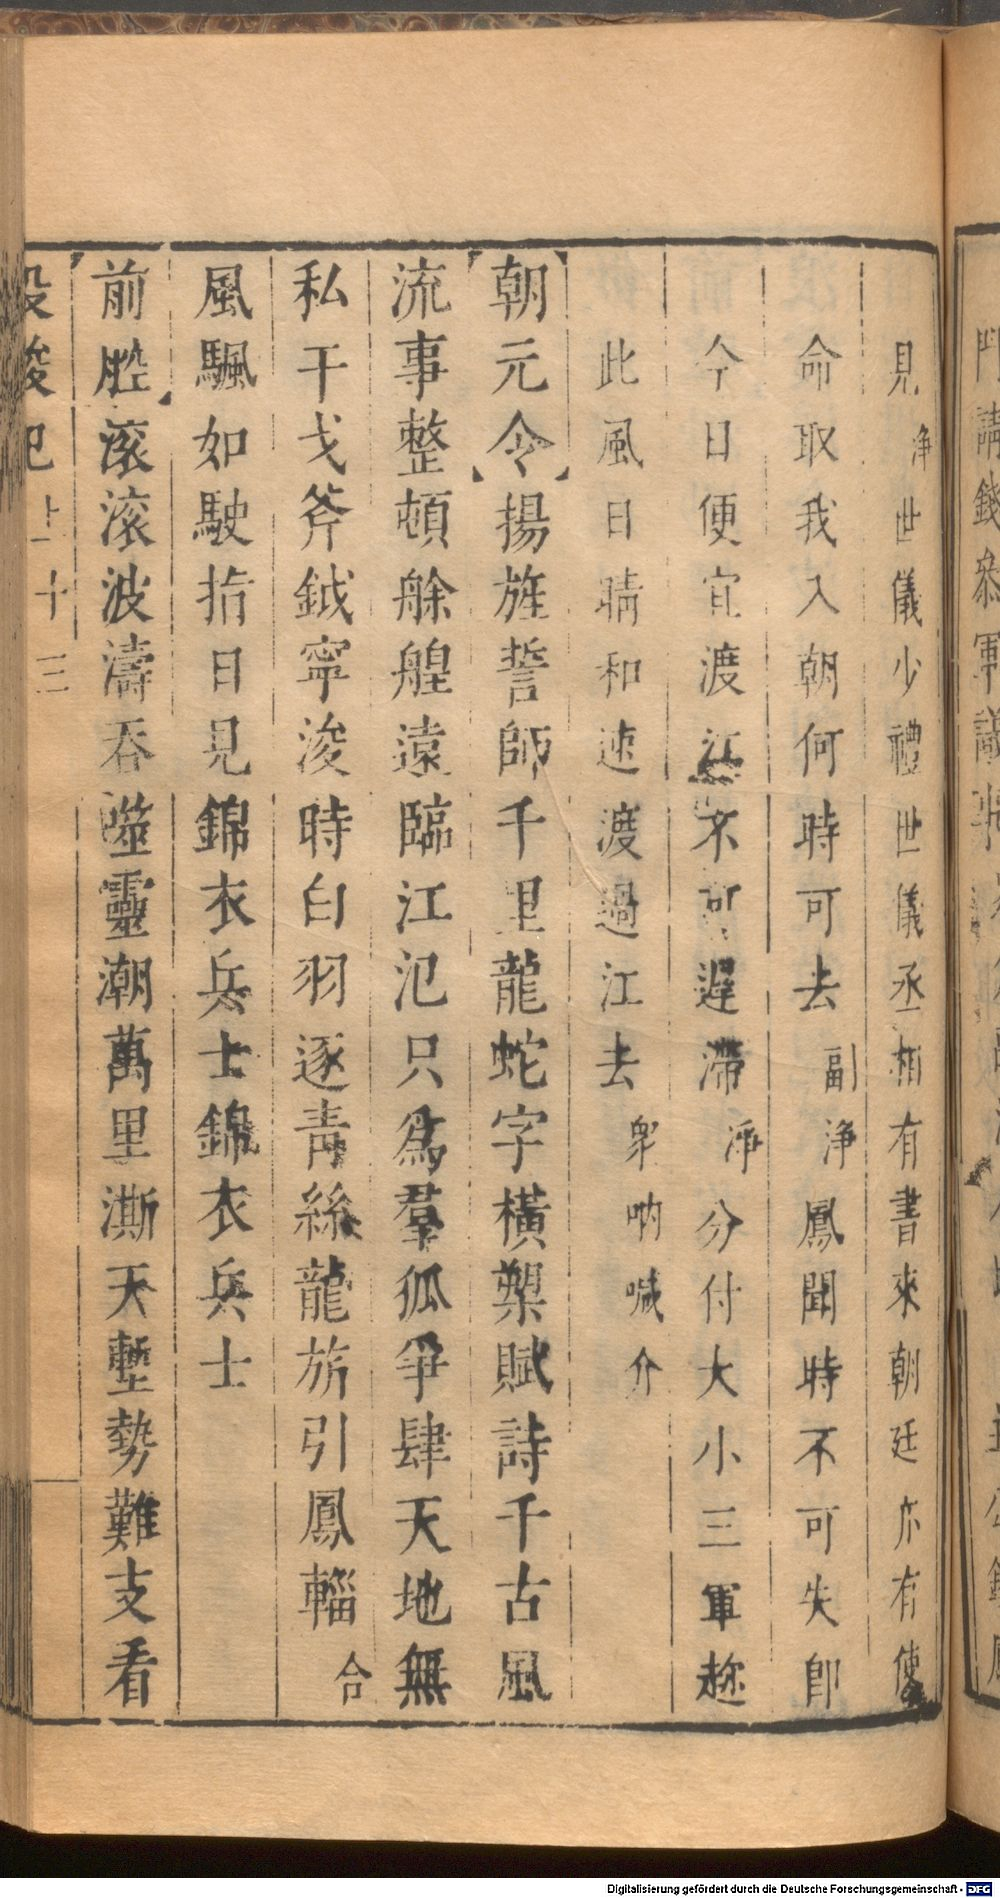 見淨世儀少禮世儀丞相有書來朝廷亦有使
命取我入朝何時可去副淨鳳聞時不可失即
今日便宜渡江不可遲滯淨分付大小三軍趂
此風日晴和速渡過江去衆吶喊介
【朝元令】揚旌誓師千里龍蛇字橫槊賦詩千古風
流事整頓艅艎遠臨江汜只爲羣狐爭肆天地無
私干戈斧鉞寧浚時白羽逐青絲龍旂引鳳輜合
風颿如駛指日見錦衣兵士錦衣兵士
【前腔】滾滾波濤吞噬靈潮萬里澌天塹勢難支看
上 十三
Digitalisierung gefördert durch die Deutsche Forschungsgemeinschaft - DFG